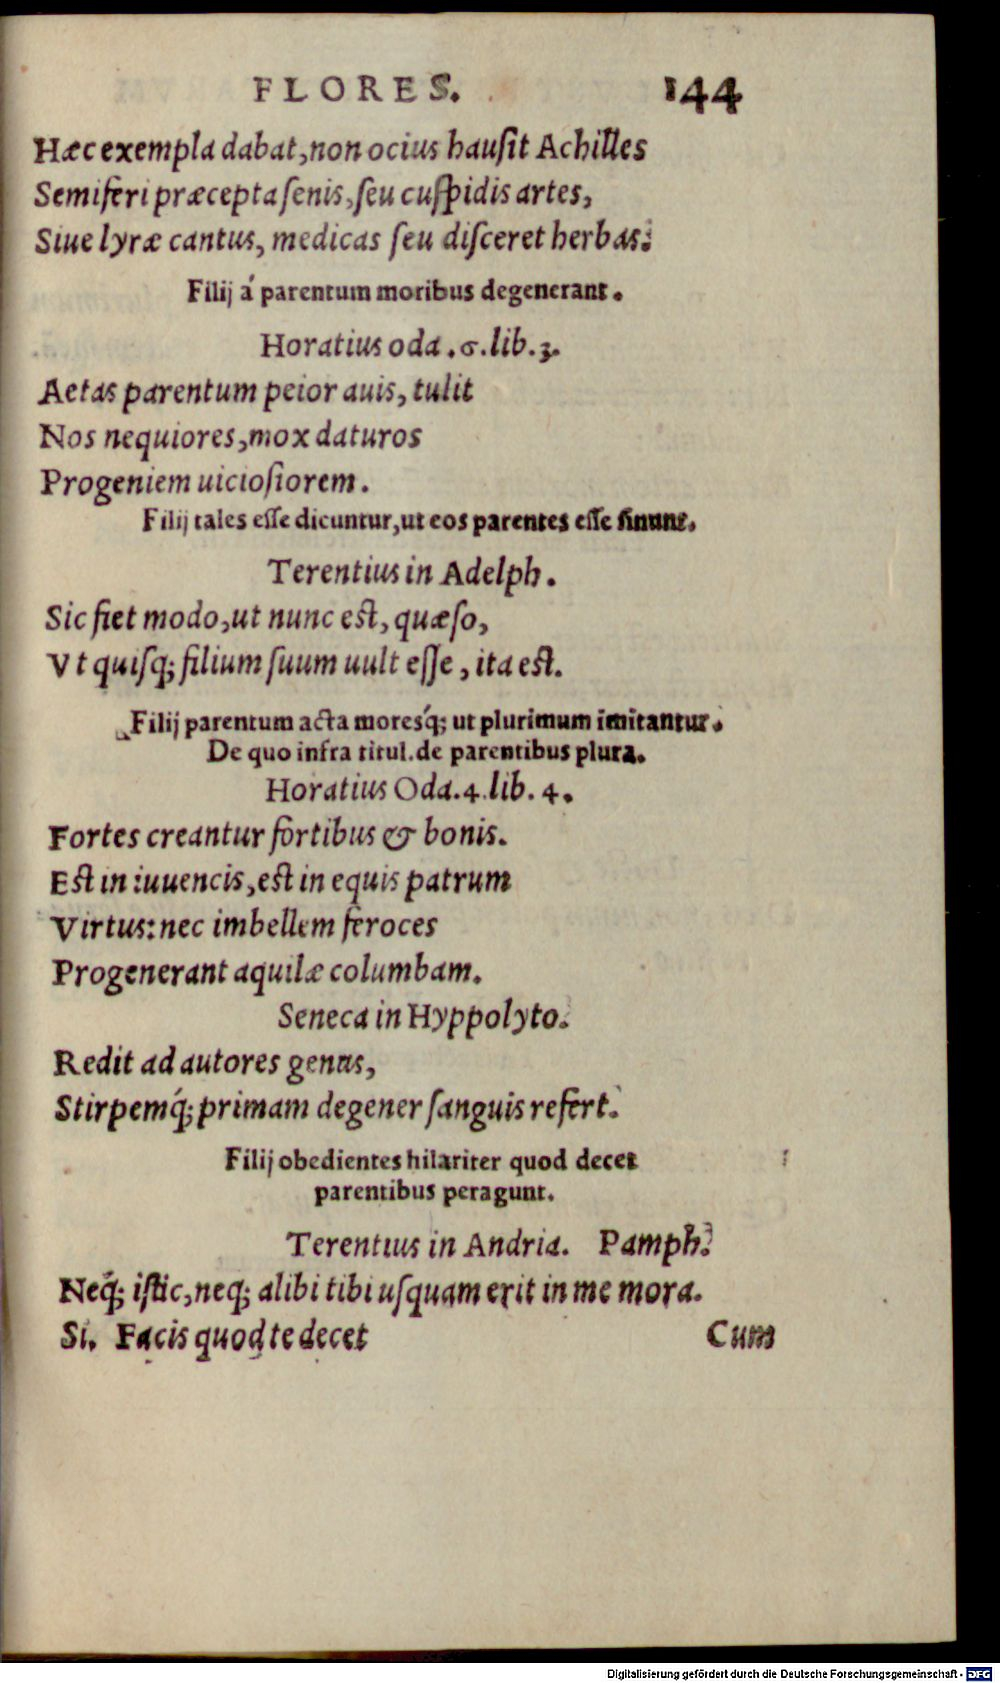 FLORES. 144
Hæc exempla dabat, non ocius hauſit Achilles
Semiferi præcepta ſenis, ſeu cuſpidis artes,
Siue lyræ cantus, medicas ſeu diſceret herbas.
Filij á parentum moribus degenerant.
Horatius oda .6. lib. 3.
Aetas parentum peior auis, tulit
Nos nequiores, mox daturos
Progeniem uicioſiorem.
Filij tales eſſe dicuntur, ut eos parentes eſſe ſinunt.
Terentius in Adelph.
Sic fiet modo, ut nunc eſt, quæſo,
Vt quiſq; filium ſuum uult eſſe, ita eſt.
Filij parentum acta moresq́; ut plurimum imitantur.
De quo infra titul. de parentibus plura.
Horatius Oda. 4. lib. 4.
Fortes creantur fortibus & bonis.
Eſt in iuuencis, eſt in equis patrum
Virtus: nec imbellem feroces
Progenerant aquilæ columbam.
Seneca in Hyppolyto.
Redit ad autores genus,
Stirpemq́; primam degener ſanguis refert.
Filij obedientes hilariter quod decet
parentibus peragunt.
Terentius in Andria. Pamph.
Neq́; iſtic, neq; alibi tibi uſquam erit in me mora.
Si. Facis quod te decet
Cum
Digitalisierung gefördert durch die Deutsche Forschungsgemeinschaft - DFG